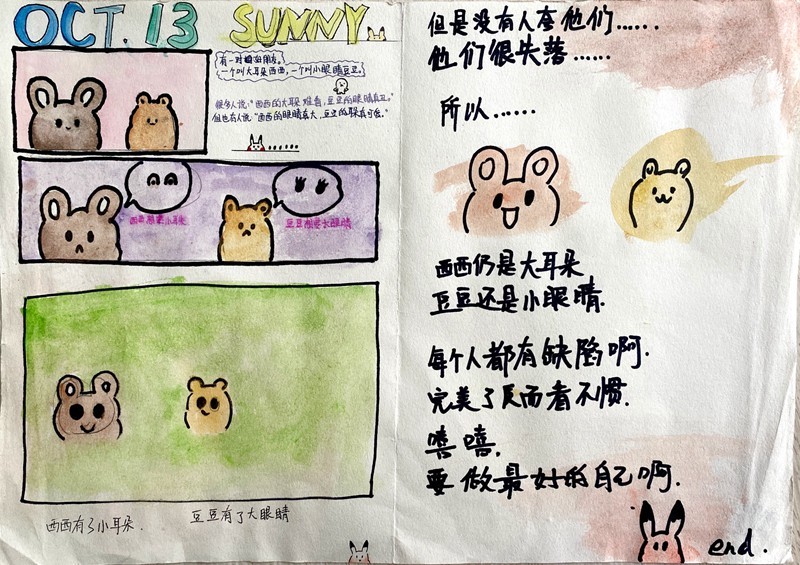 OCT. 13 SUNNY
有一对的好朋友。
一个叫大耳朵西西,一个叫小眼睛豆豆。
很多人说:"西西的大耳朵难看,豆豆的眼睛真丑。"
但也有人说"西西的眼睛真大,豆豆的耳朵真可爱。"
西西想要小耳朵
豆豆想要大眼睛
西西有了小耳朵.
豆豆有了大眼睛
但是没有人在他们……
他们很失落……
所以……
西西仍是大耳朵
豆豆还是小眼睛.
每个人都有缺陷啊.
完美了反而看不惯.
嘻嘻.
要做最好的自己啊.
end.